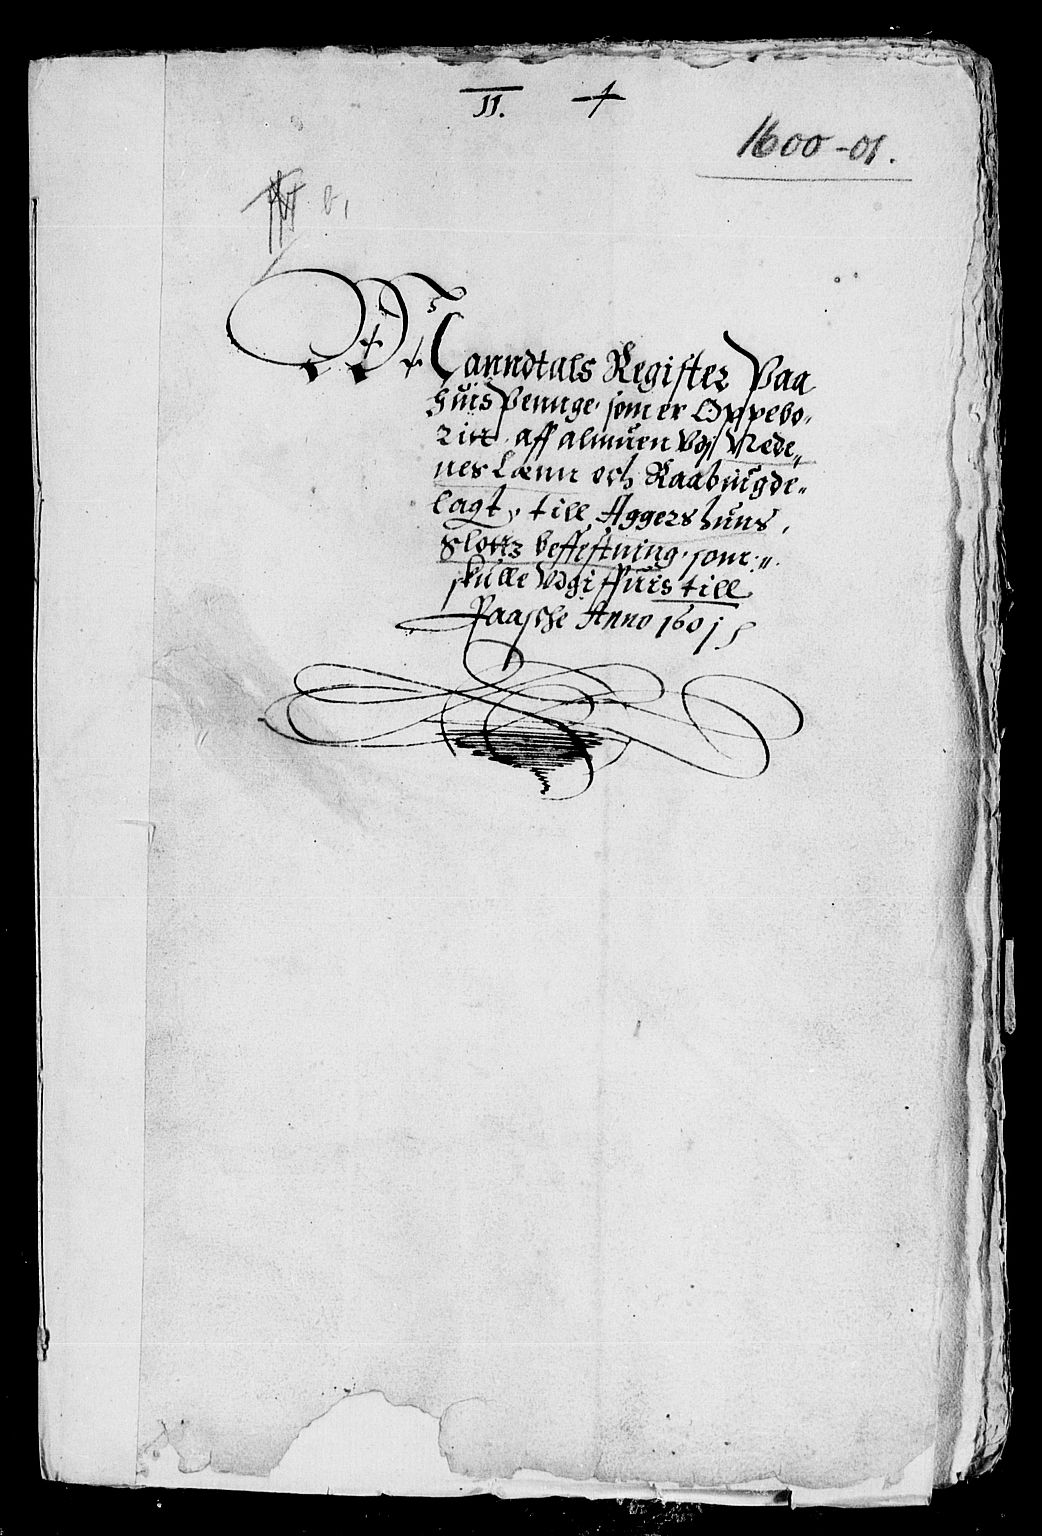 II.
1600-01.
Manndtals Register Paa
huis Pennge, som er Oppebo-
ritt, aff almuen vdj Nede-
nes Lænn och Raabuigde-
lagt, till Aggershuus,
Slottz beffestning, som
skulle vdgiffuis till
Paasche Anno 1601